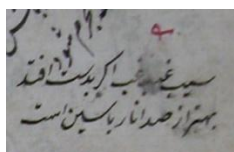 سیب غبغب اگر بدست افتد
بهتر از صد انار یاسین است